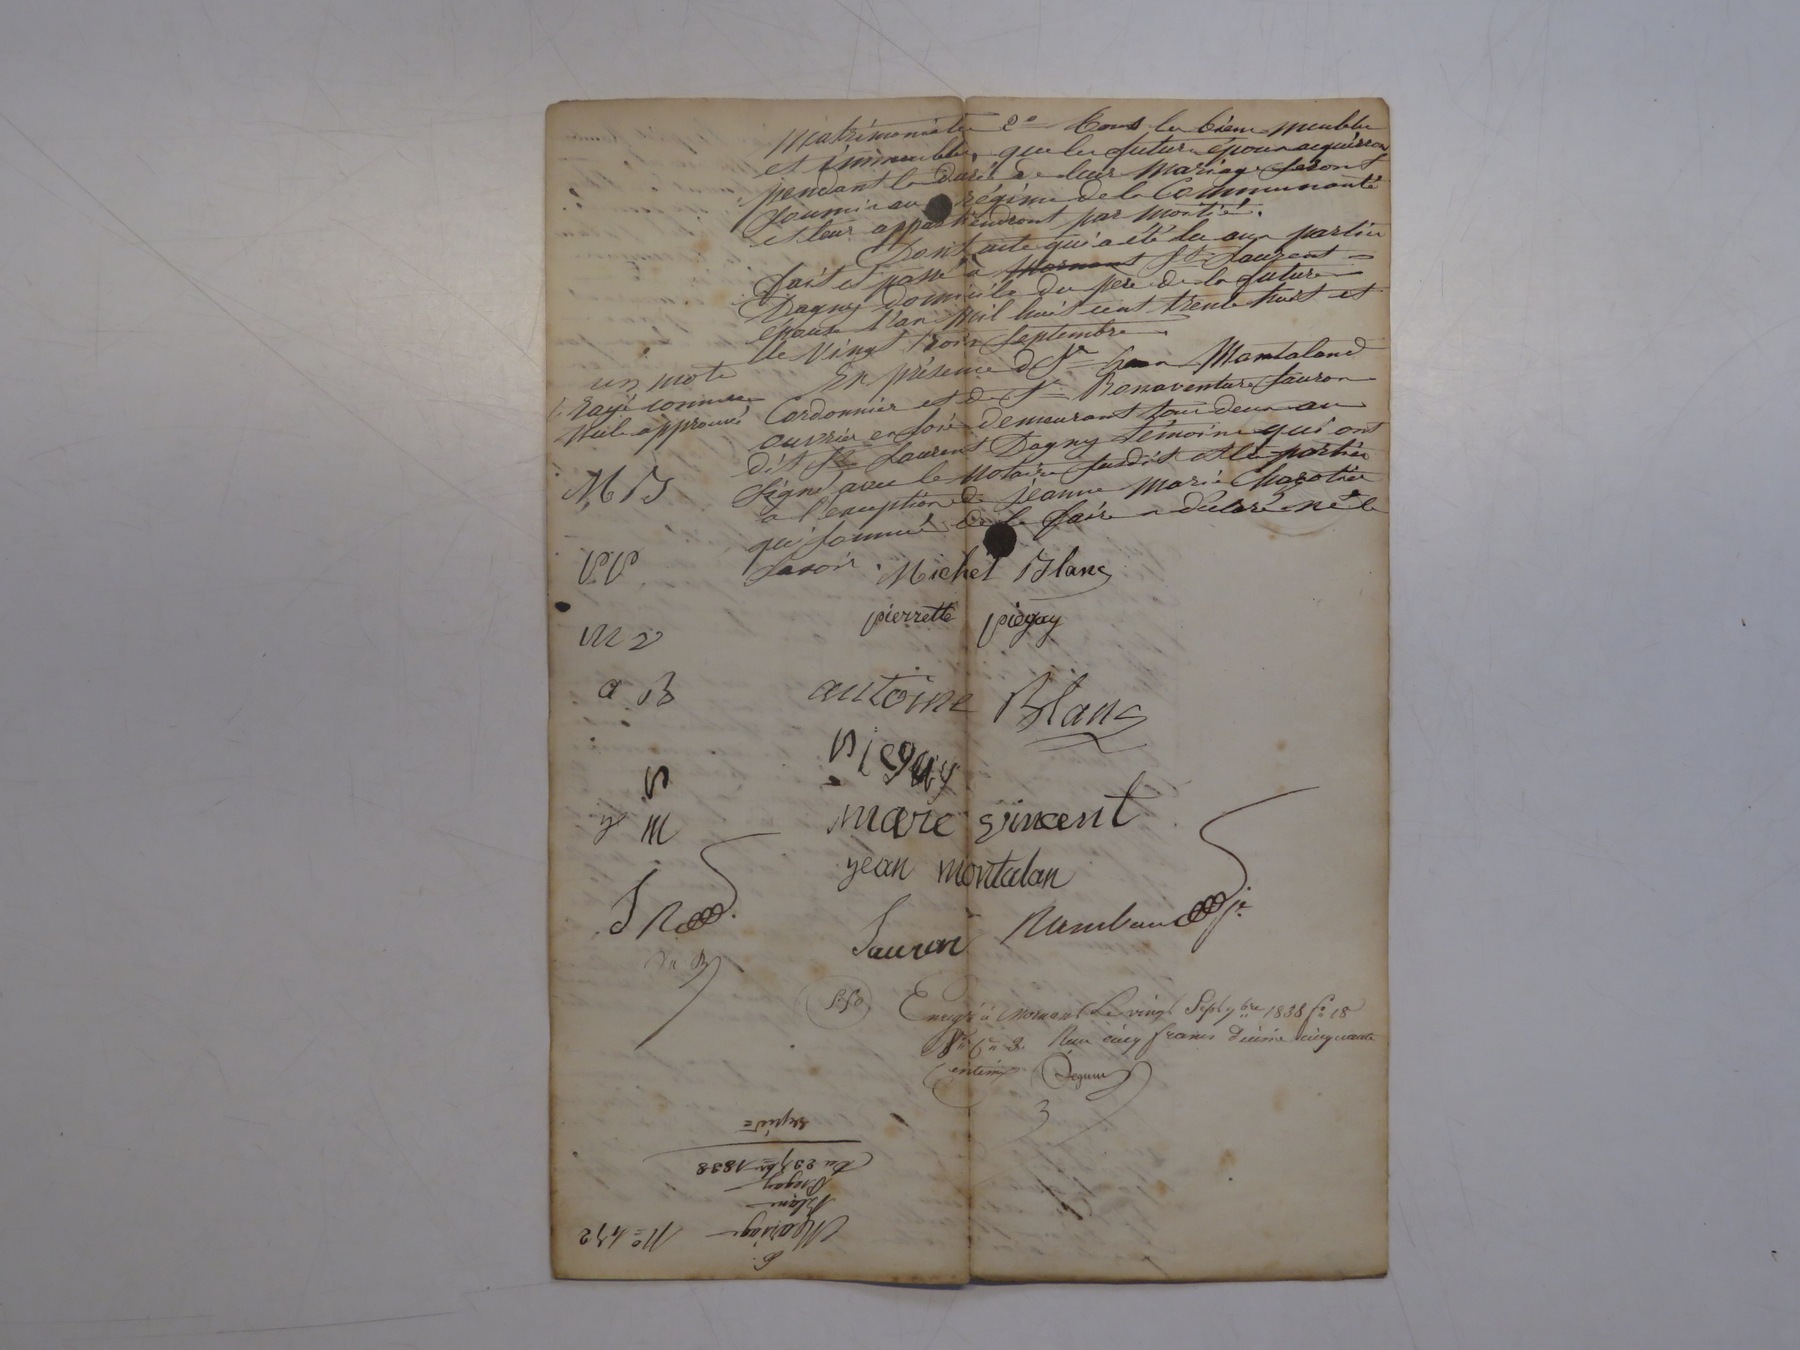 Matrimoniale 2° tous les biens meubles
et immeubles, que les futurs époux acquerront
pendant la durée de leur mariage seront
soumis au régime de la Communauté
et leur appartiendront par moitié.
Dont acte qui a été lu aux parties
fait et passé à Mornant St Laurent =
Dagny domicile du père de la future
épouse l'an mil huit cent trente huit et
le Vingt trois Septembre
En présence de Sr Jean Montaland
Cordonnier et de Sr Bonaventure Sauron
ouvrier en soie demeurant tous deux au
dit St Laurent Dagny témoins qui ont
signé avec le Notaire susdit et les parties
à l'exception de jeanne Marie Chazotier
qui sommée de le faire a déclaré ne le
savoir.
un mot
Rayé comme
Nul approuvé
M B
PP
M V
a B
P
y M
S R
Michel Blanc
pierrette piegay
antoine Blanc
Piegay
marc vincent
jean montalan
Sauron Rambaud Jne
Enregé à Mornant Le vingt Sept 7bre 1838 fo 18
Vo Ce 3. Reçu cinq francs décime cinquante
centimes
3
N° 452
Mariage
Blanc
Piegay
Du 23 7bre 1838